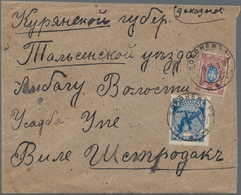 Курянской губер.
Заказное
Тальсенской уезда
Либагу Волости
Усадба Упе
Виле Шстродакъ
ВОРОНЕЖЪ